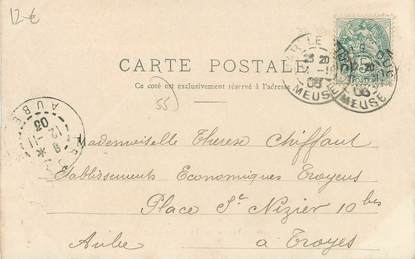 12 €
CARTE POSTALE
Ce côté est exclusivement réservé à l'adresse
55
20
MEUSE
MEUSE
AUBE
12-11
03
Mademoiselle Therese Chiffaut
Etablissements Economiques Troyens
Place St Nizier 10 bis
Aube à Troyes